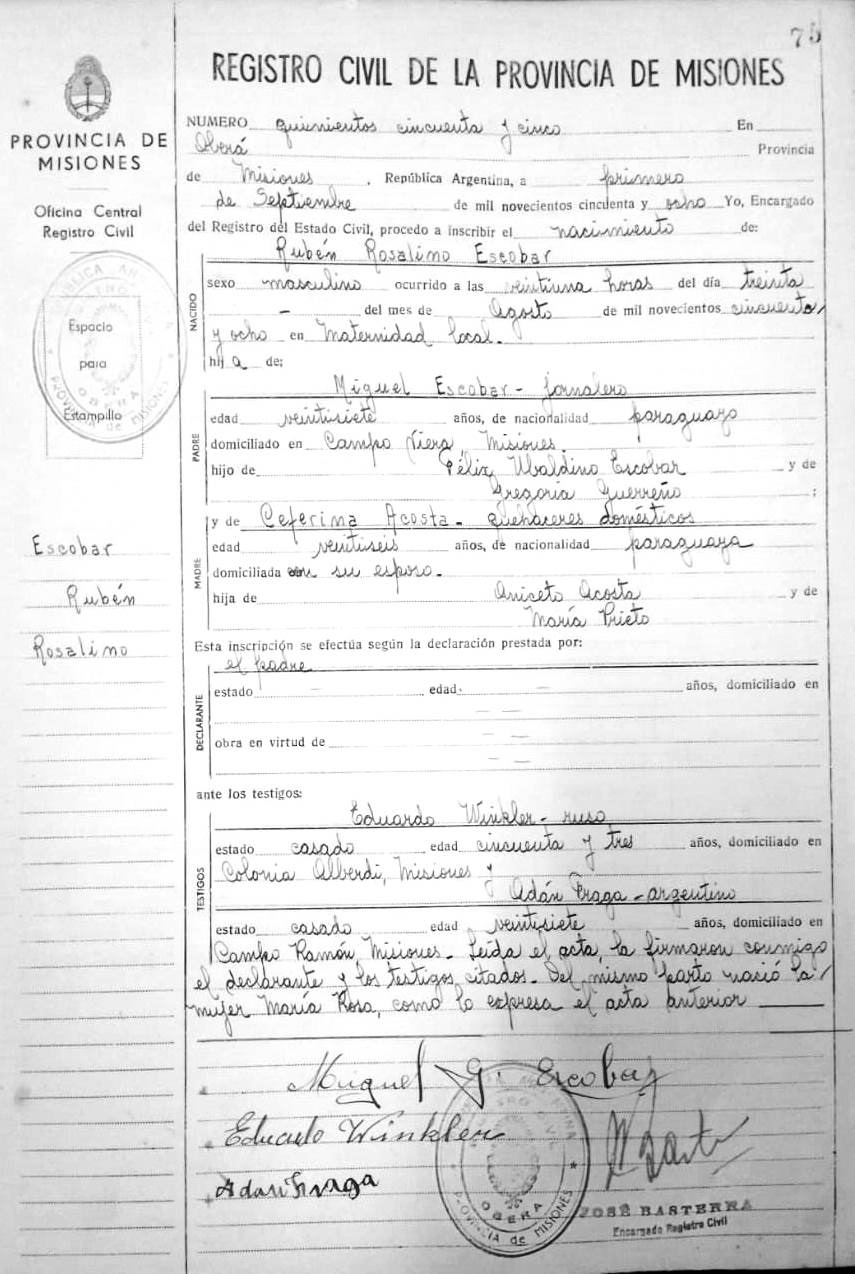 75
REGISTRO CIVIL DE LA PROVINCIA DE MISIONES
PROVINCIA DE
MISIONES
Oficina Central
Registro Civil
Espacio
para
Estampillo
Escobar
Rubén
Rosalino
NUMERO quinientos cincuenta y cinco En
Oberá Provincia
de Misiones, República Argentina, a primero
de Septiembre de mil novecientos cincuenta y ocho Yo, Encargado
del Registro del Estado Civil, procedo a inscribir el nacimiento de:
Rubén Rosalino Escobar
NACIDO
sexo masculino ocurrido a las veintiuna horas del día treinta
- del mes de Agosto de mil novecientos cincuenta
y ocho en Maternidad local.-
hij a de:
Miguel Escobar - jornalero
PADRE
edad veintisiete años, de nacionalidad paraguayo
domiciliado en Campo Viera Misiones.
hijo de Félix Ubaldino Escobar y de
Gregoria Guerreño ;
y de Ceferina Acosta - quehaceres domésticos
MADRE
edad veintiseis años, de nacionalidad paraguaya
domiciliada con su esposo.-
hija de Aniceto Acosta y de
María Prieto
Esta inscripción se efectúa según la declaración prestada por:
el padre
DECLARANTE
estado - edad - años, domiciliado en
- -
obra en virtud de - -
- -
ante los testigos:
Eduardo Winkler - ruso
TESTIGOS
estado casado edad cincuenta y tres años, domiciliado en
Colonia Alberdi, Misiones y
Adán Fraga - argentino
estado casado edad veintisiete años, domiciliado en
Campo Ramón, Misiones - Leída el acta, la firmaron conmigo
el declarante y los testigos citados - Del mismo parto nació la
mujer María Rosa, como lo expresa el acta anterior
Miguel G. Escobar
Eduardo Winkler
Adan Fraga
OBERA
PROVINCIA de MISIONES
JOSÉ BASTERRA
Encargado Registro Civil